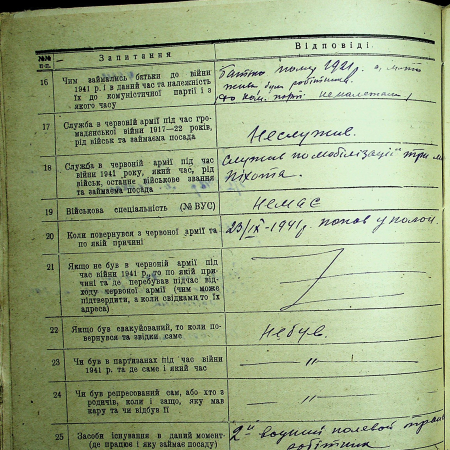 №№ п-п.
Запитання
Відповіді
16
Чим займались батьки до війни
1941 р. і в даний час та належність
їх до комуністичної партії і з
якого часу
Батько помер 1921 г. а мати
жива були робітники.
до ком. партії не належали
17
Служба в червоній армії під час гро-
мадянської війни 1917—22 років,
рід військ та займаема посада
Не служив.
18
Служба в червоній армії під час
війни 1941 року, який час, рід
військ, останнє військове звання
та займаема посада
служив по мобілізації три
піхота.
19
Військова спеціальність (№ ВУС)
немає
20
Коли повернувся з червоної армії та
по якій причині
23/IX-1941 р. попав у полон.
21
Якщо не був в червоній армії під
час війни 1941 р., то по якій при-
чині та де перебував підчас від-
ходу червоної армії (чим може
підтвердити, а коли свідками, то їх
адреса)
22
Якщо був евакуйований, то коли по-
вернувся та звідки саме
не був.
23
Чи був в партизанах під час війни
1941 р. та де саме і який час
—〃—
24
Чи був репресований сам, або хто з
родичів, коли і защо, яку мав
кару та чи відбув її
—〃—
25
Засоби існування в даний момент
(де працює і яку займає посаду)
2й водний полевой
робітник